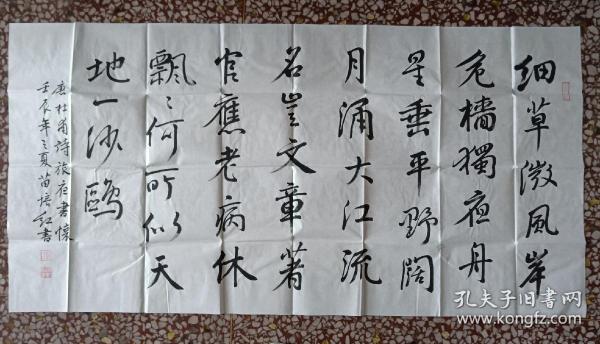 细草微風岸
危檣獨夜舟
星垂平野闊
月涌大江流
名豈文章著
官應老病休
飄〻何所似天
地一沙鷗
唐杜甫詩旅夜書懷
壬辰年之夏苗培红書
孔夫子旧书网
www.kongfz.com